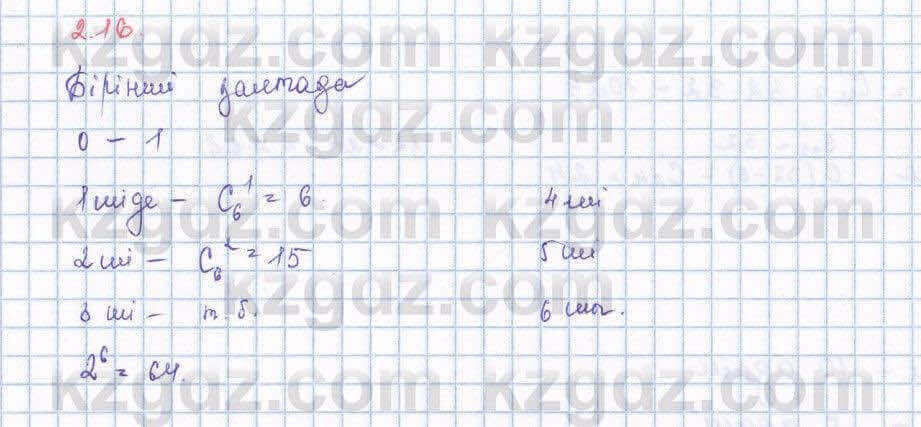 2.16.
Бірінші қалтада
0 - 1
1 шіде - C₆¹ = 6.
4 ші
2 ші - C₆² = 15
5 ші
3 ші - т.б.
6 шы.
2⁶ = 64.
kzgdz.com
kzgdz.com
kzgdz.com
kzgdz.com
kzgdz.com
kzgdz.com
kzgdz.com
kzgdz.com